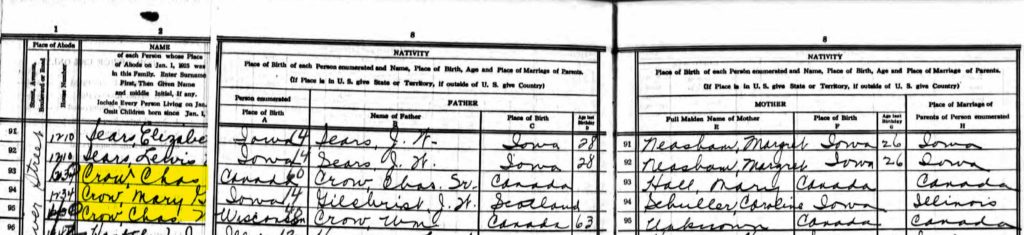 1 2
Place of Abode NAME
Street, Avenue, Boulevard or Road
House Number
of each Person whose Place
of Abode on Jan. 1, 1925 was
in this Family. Enter Surname
First, Then Given Name
and middle Initial, if any.
Include Every Person Living on Jan.
Omit Children born since Jan. 1,
8
NATIVITY
Place of Birth of each Person enumerated and Name, Place of Birth, Age and Place of Marriage of Parents.
(If Place is in U. S. give State or Territory, if outside of U. S. give Country)
Person enumerated FATHER
Place of Birth A Name of Father B Place of Birth C Age last Birthday D
8
NATIVITY
Place of Birth of each Person enumerated and Name, Place of Birth, Age and Place of Marriage of Parents.
(If Place is in U. S. give State or Territory, if outside of U. S. give Country)
MOTHER Place of Marriage of
Full Maiden Name of Mother E Place of Birth F Age last Birthday G Parents of Person enumerated H
91 1210 Sears, Elizabe Iowa 14 Sears, J. W. Iowa 28 91 Margret Iowa 26 Iowa
92 1210 Sears, Lewis Iowa 14 Sears J. W. Iowa 28 92 Margret Iowa 26 Iowa
93 Crow Chas Canada Crow, Chas. Sr. Canada 93 Hall, Mary Canada Canada
94 1734 Crow, Mary G Iowa 14 Gilchrist J. W. Scotland 94 Schuller, Caroline Iowa Illinois
95 Crow Chas. Wisconsin Crow, Wm Canada 63 95 Unknown Canada Canada
96